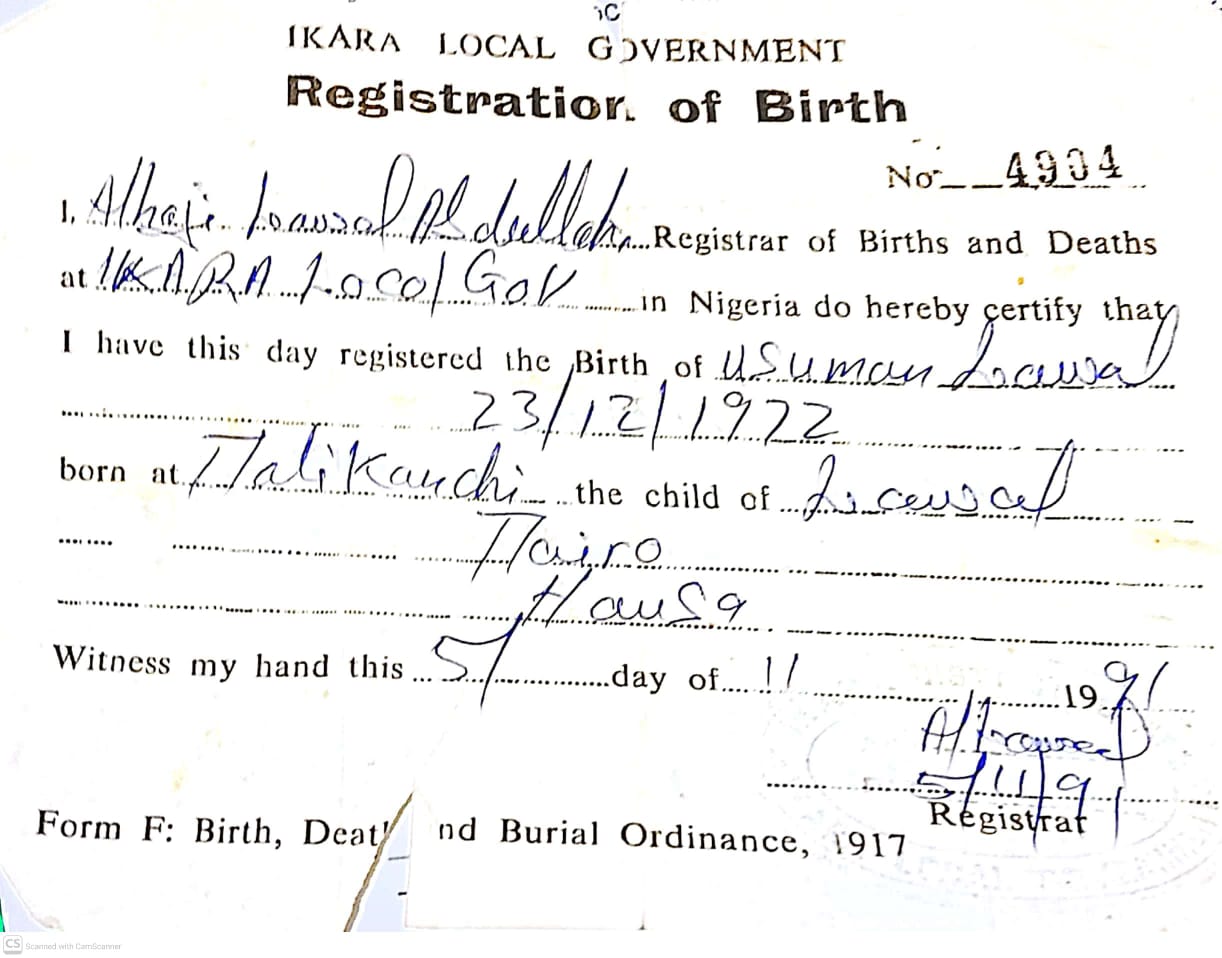 IKARA LOCAL GOVERNMENT
Registration of Birth
No 4934
I, Alhaji Lawal Abdullahi Registrar of Births and Deaths
at IKARA Local Gov in Nigeria do hereby certify that
I have this day registered the Birth of Usuman Lawal
23/12/1972
born at Malikanchi the child of Lawal
Mairo
Hausa
Witness my hand this 5/ day of 11 1991
5/11/91
Registrar
Form F: Birth, Deat nd Burial Ordinance, 1917
CS Scanned with CamScanner